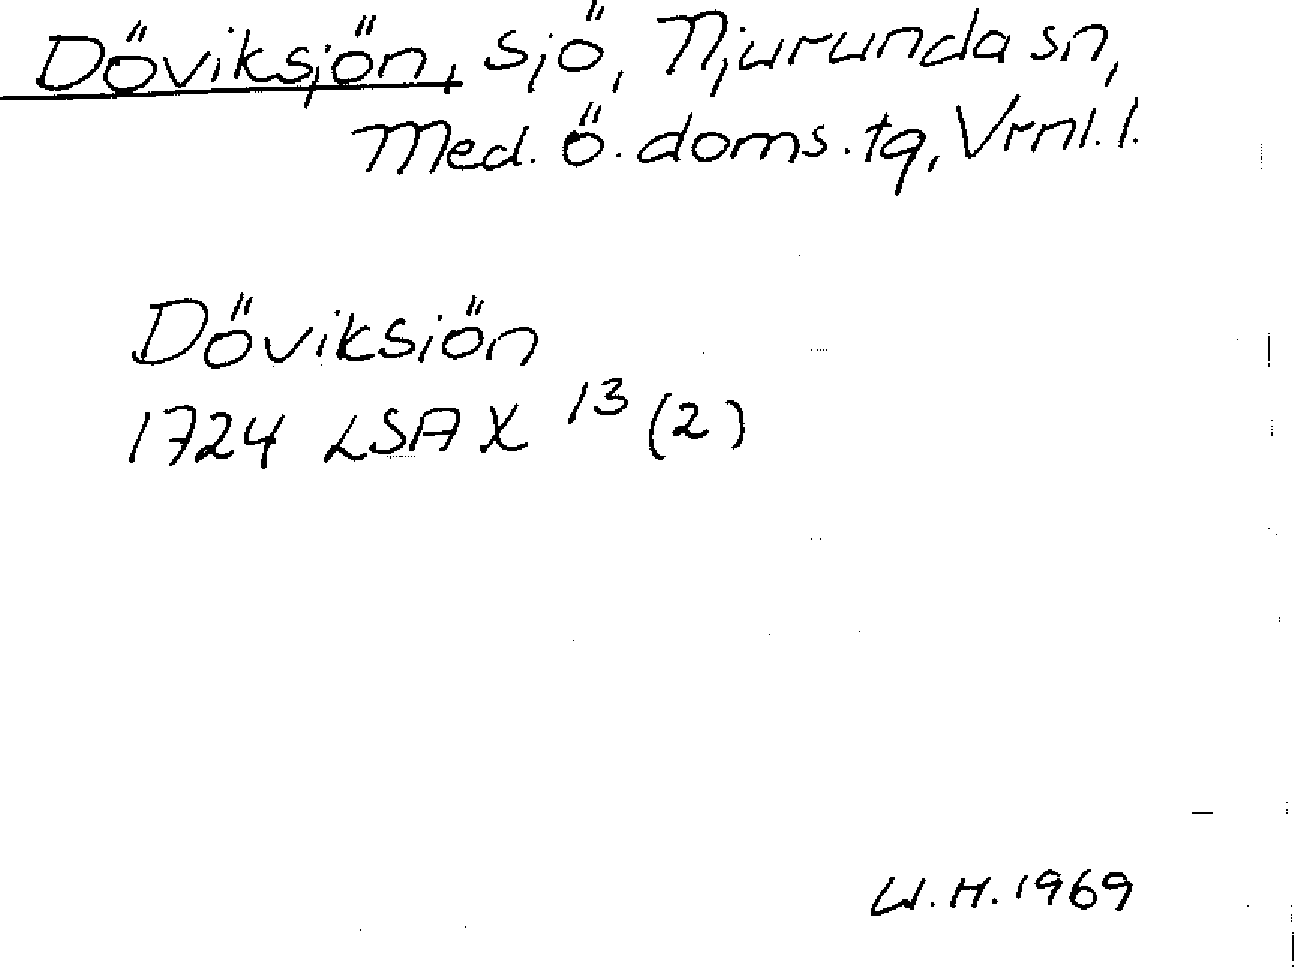 Döviksjön, sjö, Njurunda sn,
Med. Ö. doms. tg, Vrnl. l.
Döviksiön
1724 LSA X 13 (2)
W.H. 1969